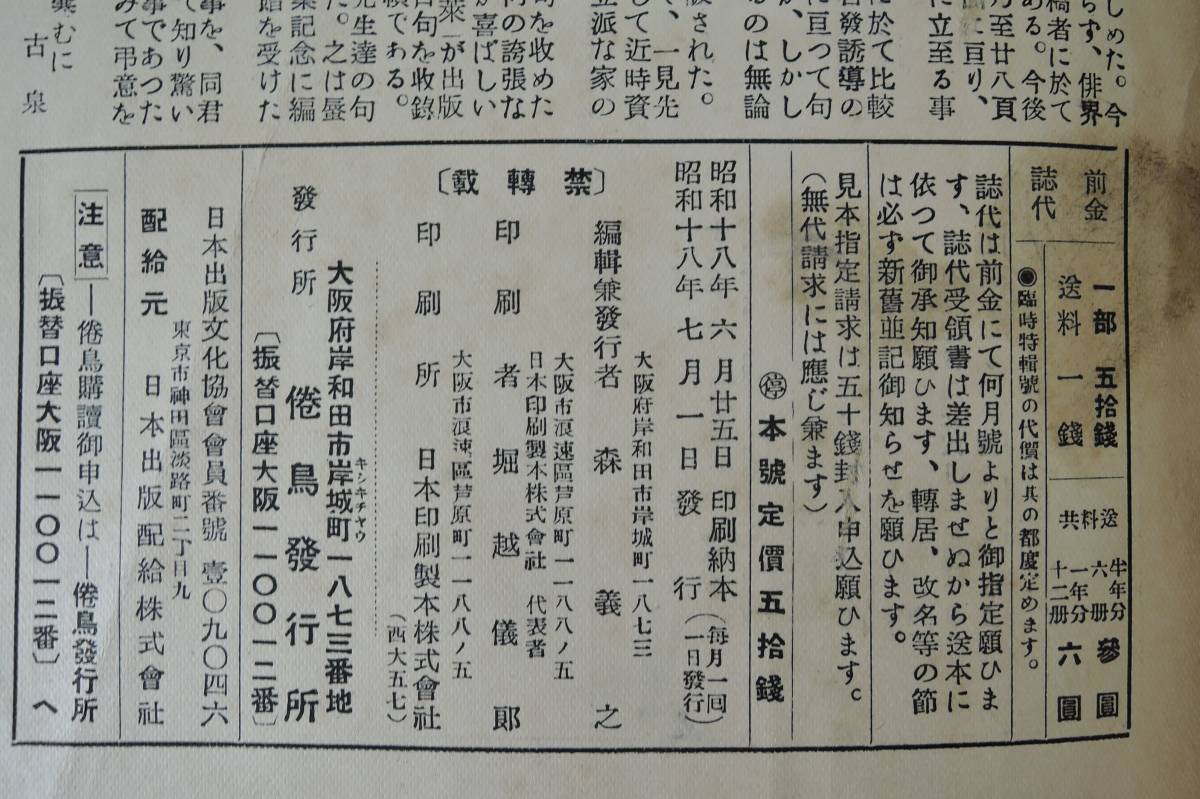 しめた。今
らず、俳界
稿者に於て
ある。今後
乃至廿八頁
に亘り、
に立至る事
に於て比較
發誘導の
に亘つて句
、しかし
るのは無論
版された。
、一見先
して近時資
立派な家の
句を收めた
何の誇張な
が喜ばしい
萊」が出版
百句を收錄
績である。
先生達の句
た。之は蜑
業記念に編
館を受けた
事を、同君
て知り驚い
事であつた
みて弔意を
寒むに
古泉
前金
誌代
一部 五拾錢
送料 一錢
送料共
半年分 六册 參圓
一年分 十二册 六圓
◉臨時特輯號の代價は其の都度定めます。
誌代は前金にて何月號よりと御指定願ひま
す、誌代受領書は差出しませぬから送本に
依つて御承知願ひます、轉居、改名等の節
は必ず新舊並記御知らせを願ひます。
見本指定請求は五十錢封入申込願ひます。
(無代請求には應じ兼ます)
㊡本號定價五拾錢
昭和十八年 六月廿五日 印刷納本
昭和十八年 七月一日 發行
(每月一回一日發行)
〔禁轉載〕
大阪府岸和田市岸城町一八七三
編輯兼發行者 森義之
大阪市浪速區芦原町一一八八ノ五
日本印刷製本株式會社 代表者
印刷者 堀越儀郎
大阪市浪速區芦原町一一八八ノ五
印刷所 日本印刷製本株式會社
(西大五七)
大阪府岸和田市岸城町一八七三番地
キシキチヤウ
發行所 倦鳥發行所
〔振替口座大阪一一〇〇一二番〕
日本出版文化協會會員番號 壹〇九〇四六
東京市神田區淡路町二丁目九
配給元 日本出版配給株式會社
注意—倦鳥購讀御申込は—倦鳥發行所
〔振替口座大阪一一〇〇一二番〕へ